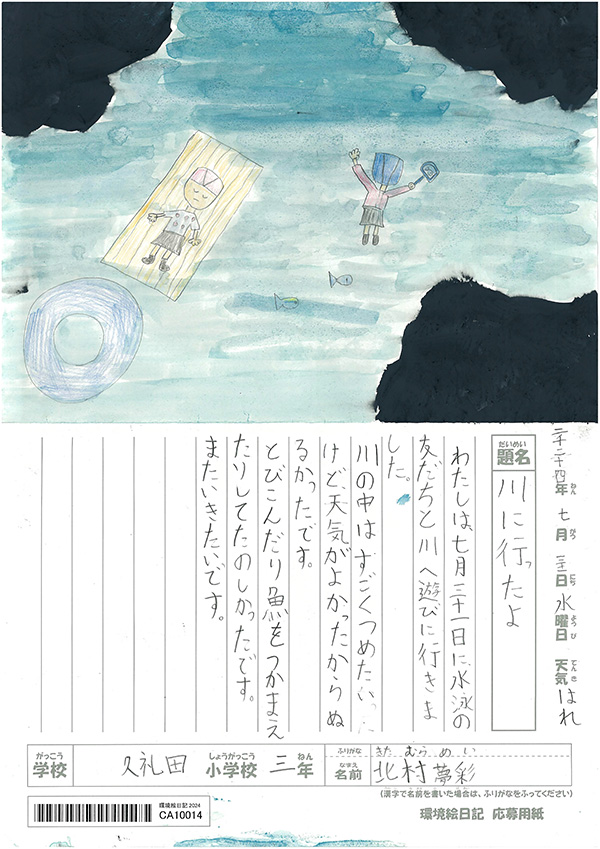 二千二十四年 七月 三十一日 水曜日 天気 はれ
ねん がつ にち ようび てんき
だいめい
題名
川に行ったよ
わたしは、七月三十一日に、水泳の
友だちと川へ遊びに行きま
した。
川の中はすごくつめたい
けど、天気がよかったから ぬ
るかったです。
とびこんだり魚をつかまえ
たりしてたのしかったです。
またいきたいです。
がっこう しょうがっこう ねん
学校 久礼田 小学校 三年
ふりがな きたむらめい
なまえ
名前 北村夢彩
(漢字で名前を書いた場合は、ふりがなをふってください)
環境絵日記 2024
CA10014
環境絵日記 応募用紙